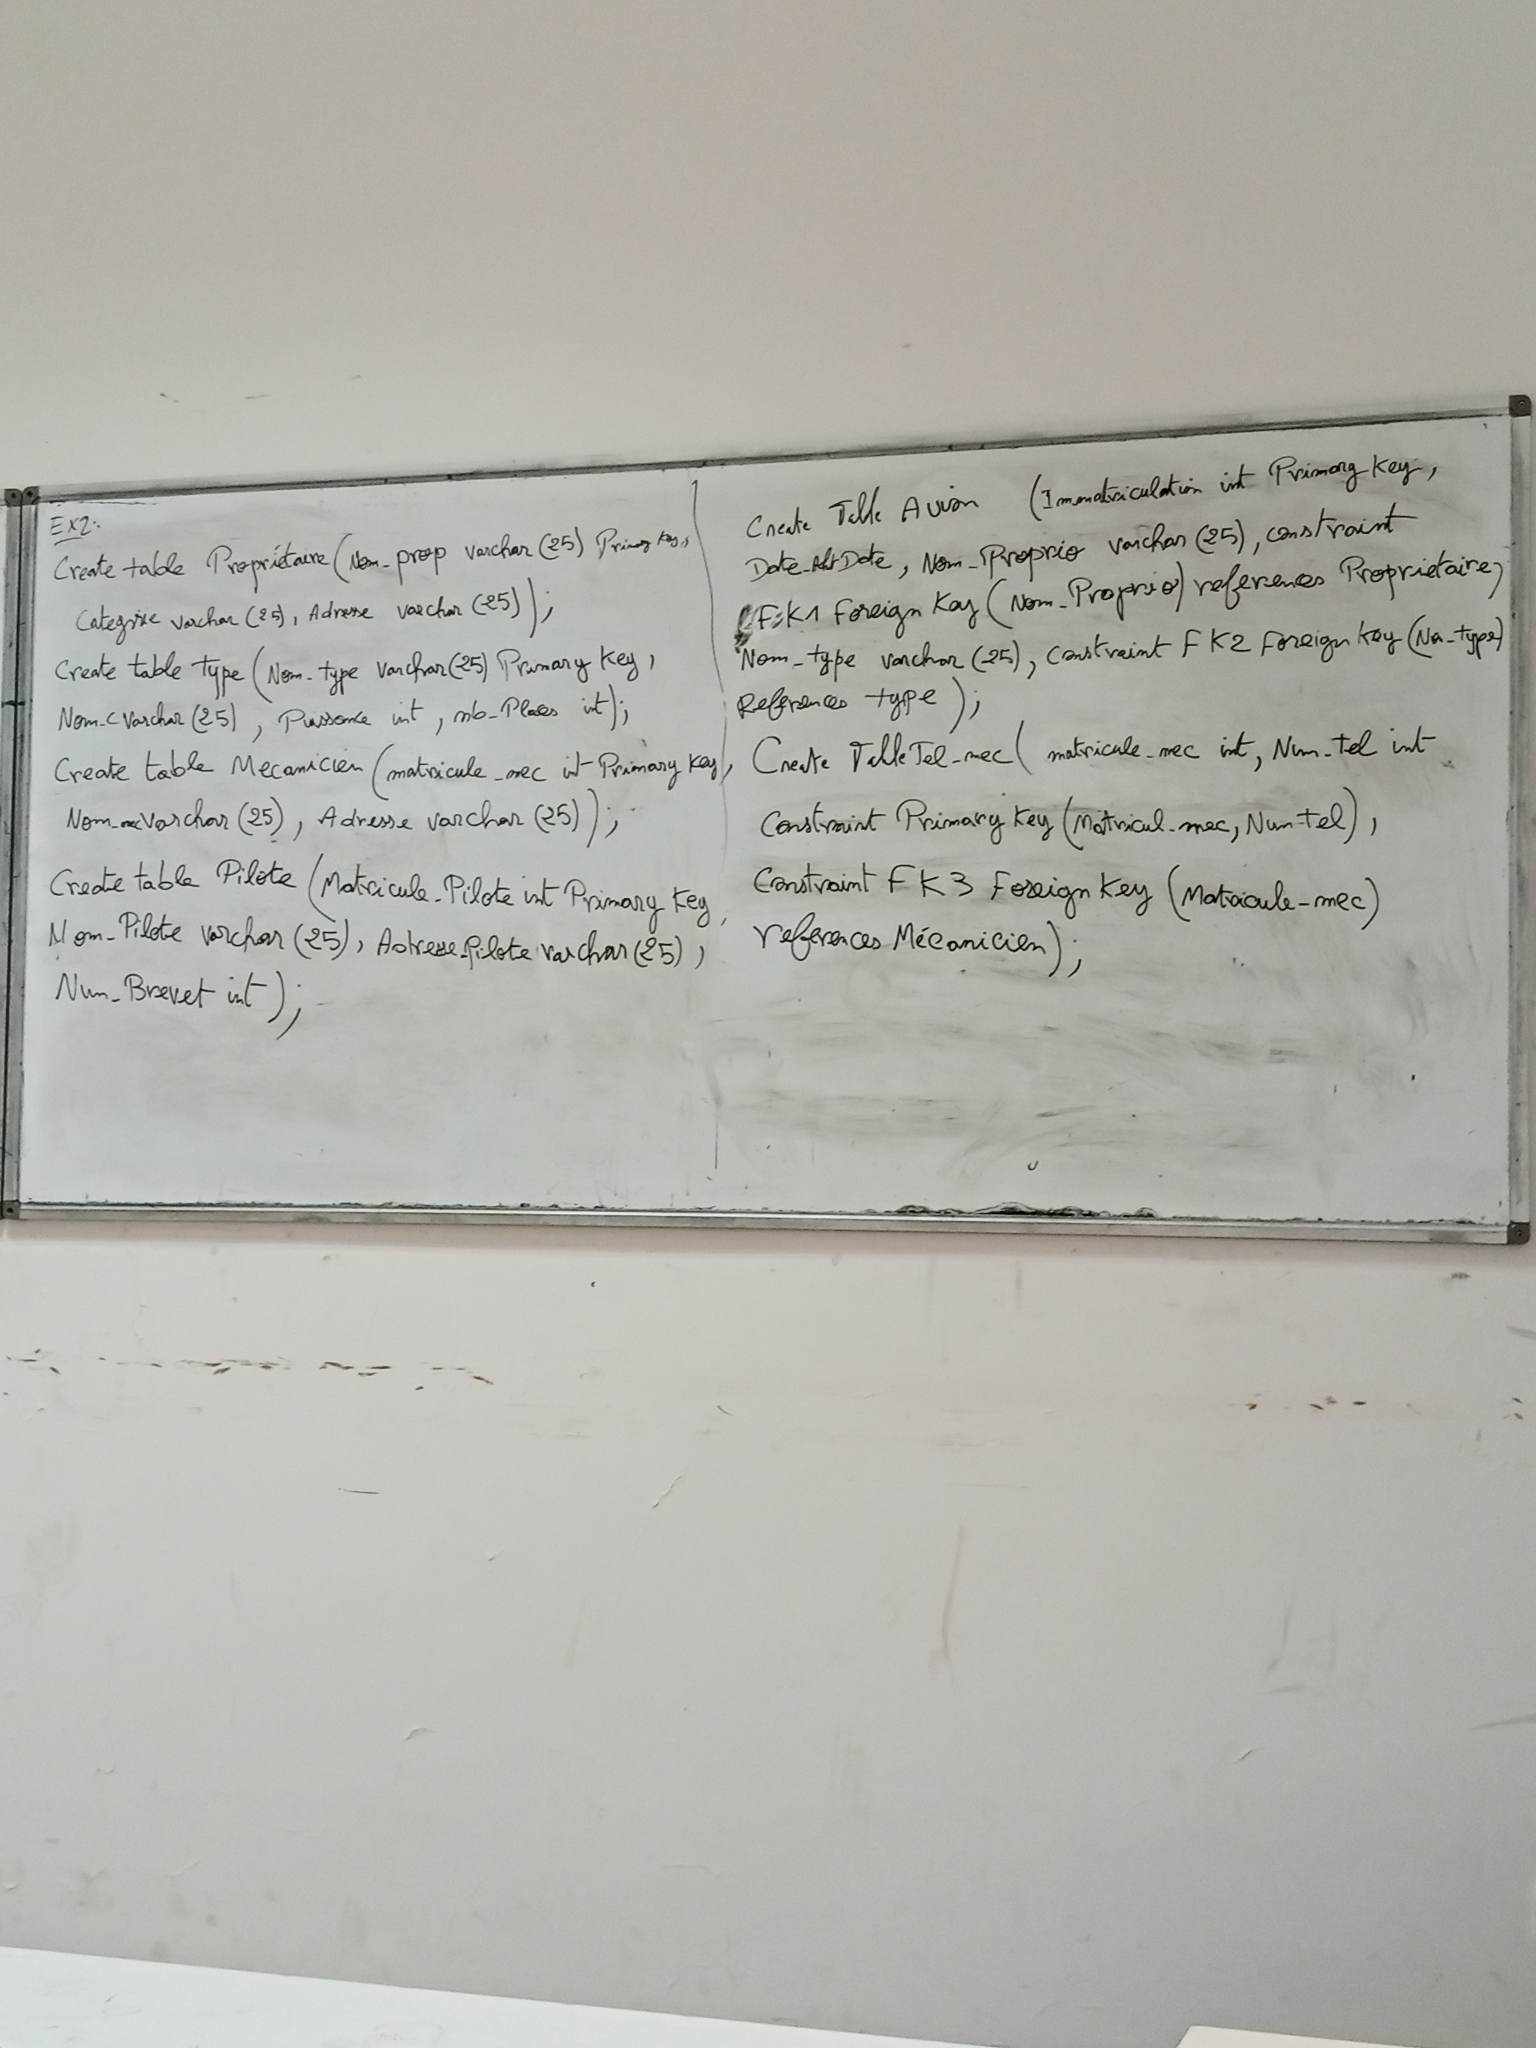 Ex2:
Create table Propriétaire (Nom_prop varchar (25) Primary Key,
Categorie varchar (25), Adresse varchar (25));
Create table type (Nom_type varchar(25) Primary Key,
Nom_C varchar (25), Puissance int, nb_Places int);
Create table Mecanicien (matricule_mec int Primary Key,
Nom_mec varchar (25), Adresse varchar (25));
Create table Pilote (Matricule_Pilote int Primary Key,
Nom_Pilote varchar (25), Adresse_Pilote varchar (25),
Num_Brevet int);
Create Table Avion (Immatriculation int Primary Key,
Date_Aht Date, Nom_Proprio varchar (25), constraint
FK1 Foreign Key (Nom_Proprio) references Propriétaire,
Nom_type varchar (25), Constraint FK2 Foreign Key (No_type)
References type);
Create Table Tel_mec (matricule_mec int, Num_tel int
Constraint Primary Key (Matricul_mec, Num_tel),
Constraint FK3 Foreign Key (Matricule_mec)
references Mécanicien);